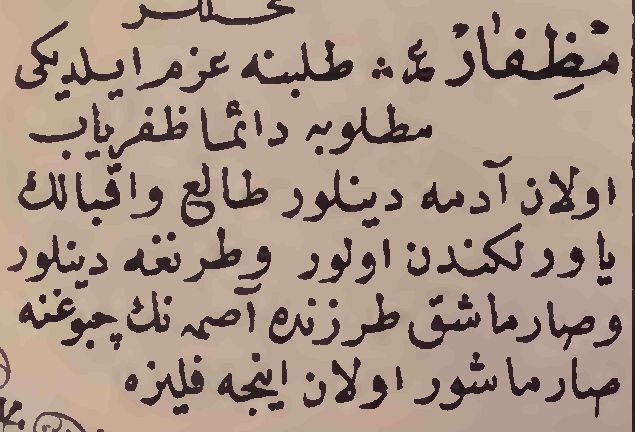 مظفار ع طلبنه عزم ايلديكى
مطلوبه دائما ظفرياب
اولان آدمه دينلور طالع واقبالك
ياورلكندن اولور وطرنغه دينلور
وصارماشق طرزنده آصمه نك چبوغنه
صارماشور اولان اينجه فليزه